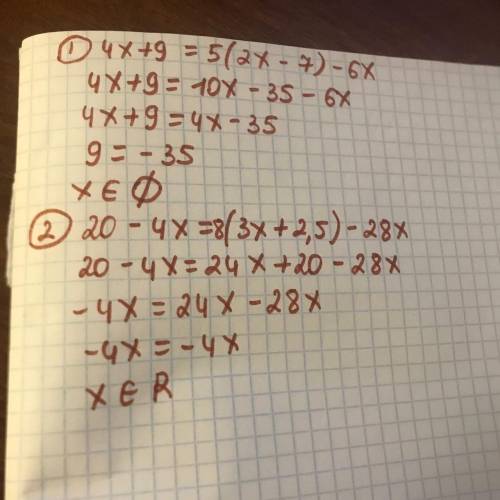 ① 4x+9 = 5(2x - 7) - 6x
4x+9 = 10x - 35 - 6x
4x+9 = 4x - 35
9 = -35
x ∈ ∅
② 20 - 4x = 8(3x + 2,5) - 28x
20 - 4x = 24x + 20 - 28x
-4x = 24x - 28x
-4x = -4x
x ∈ R